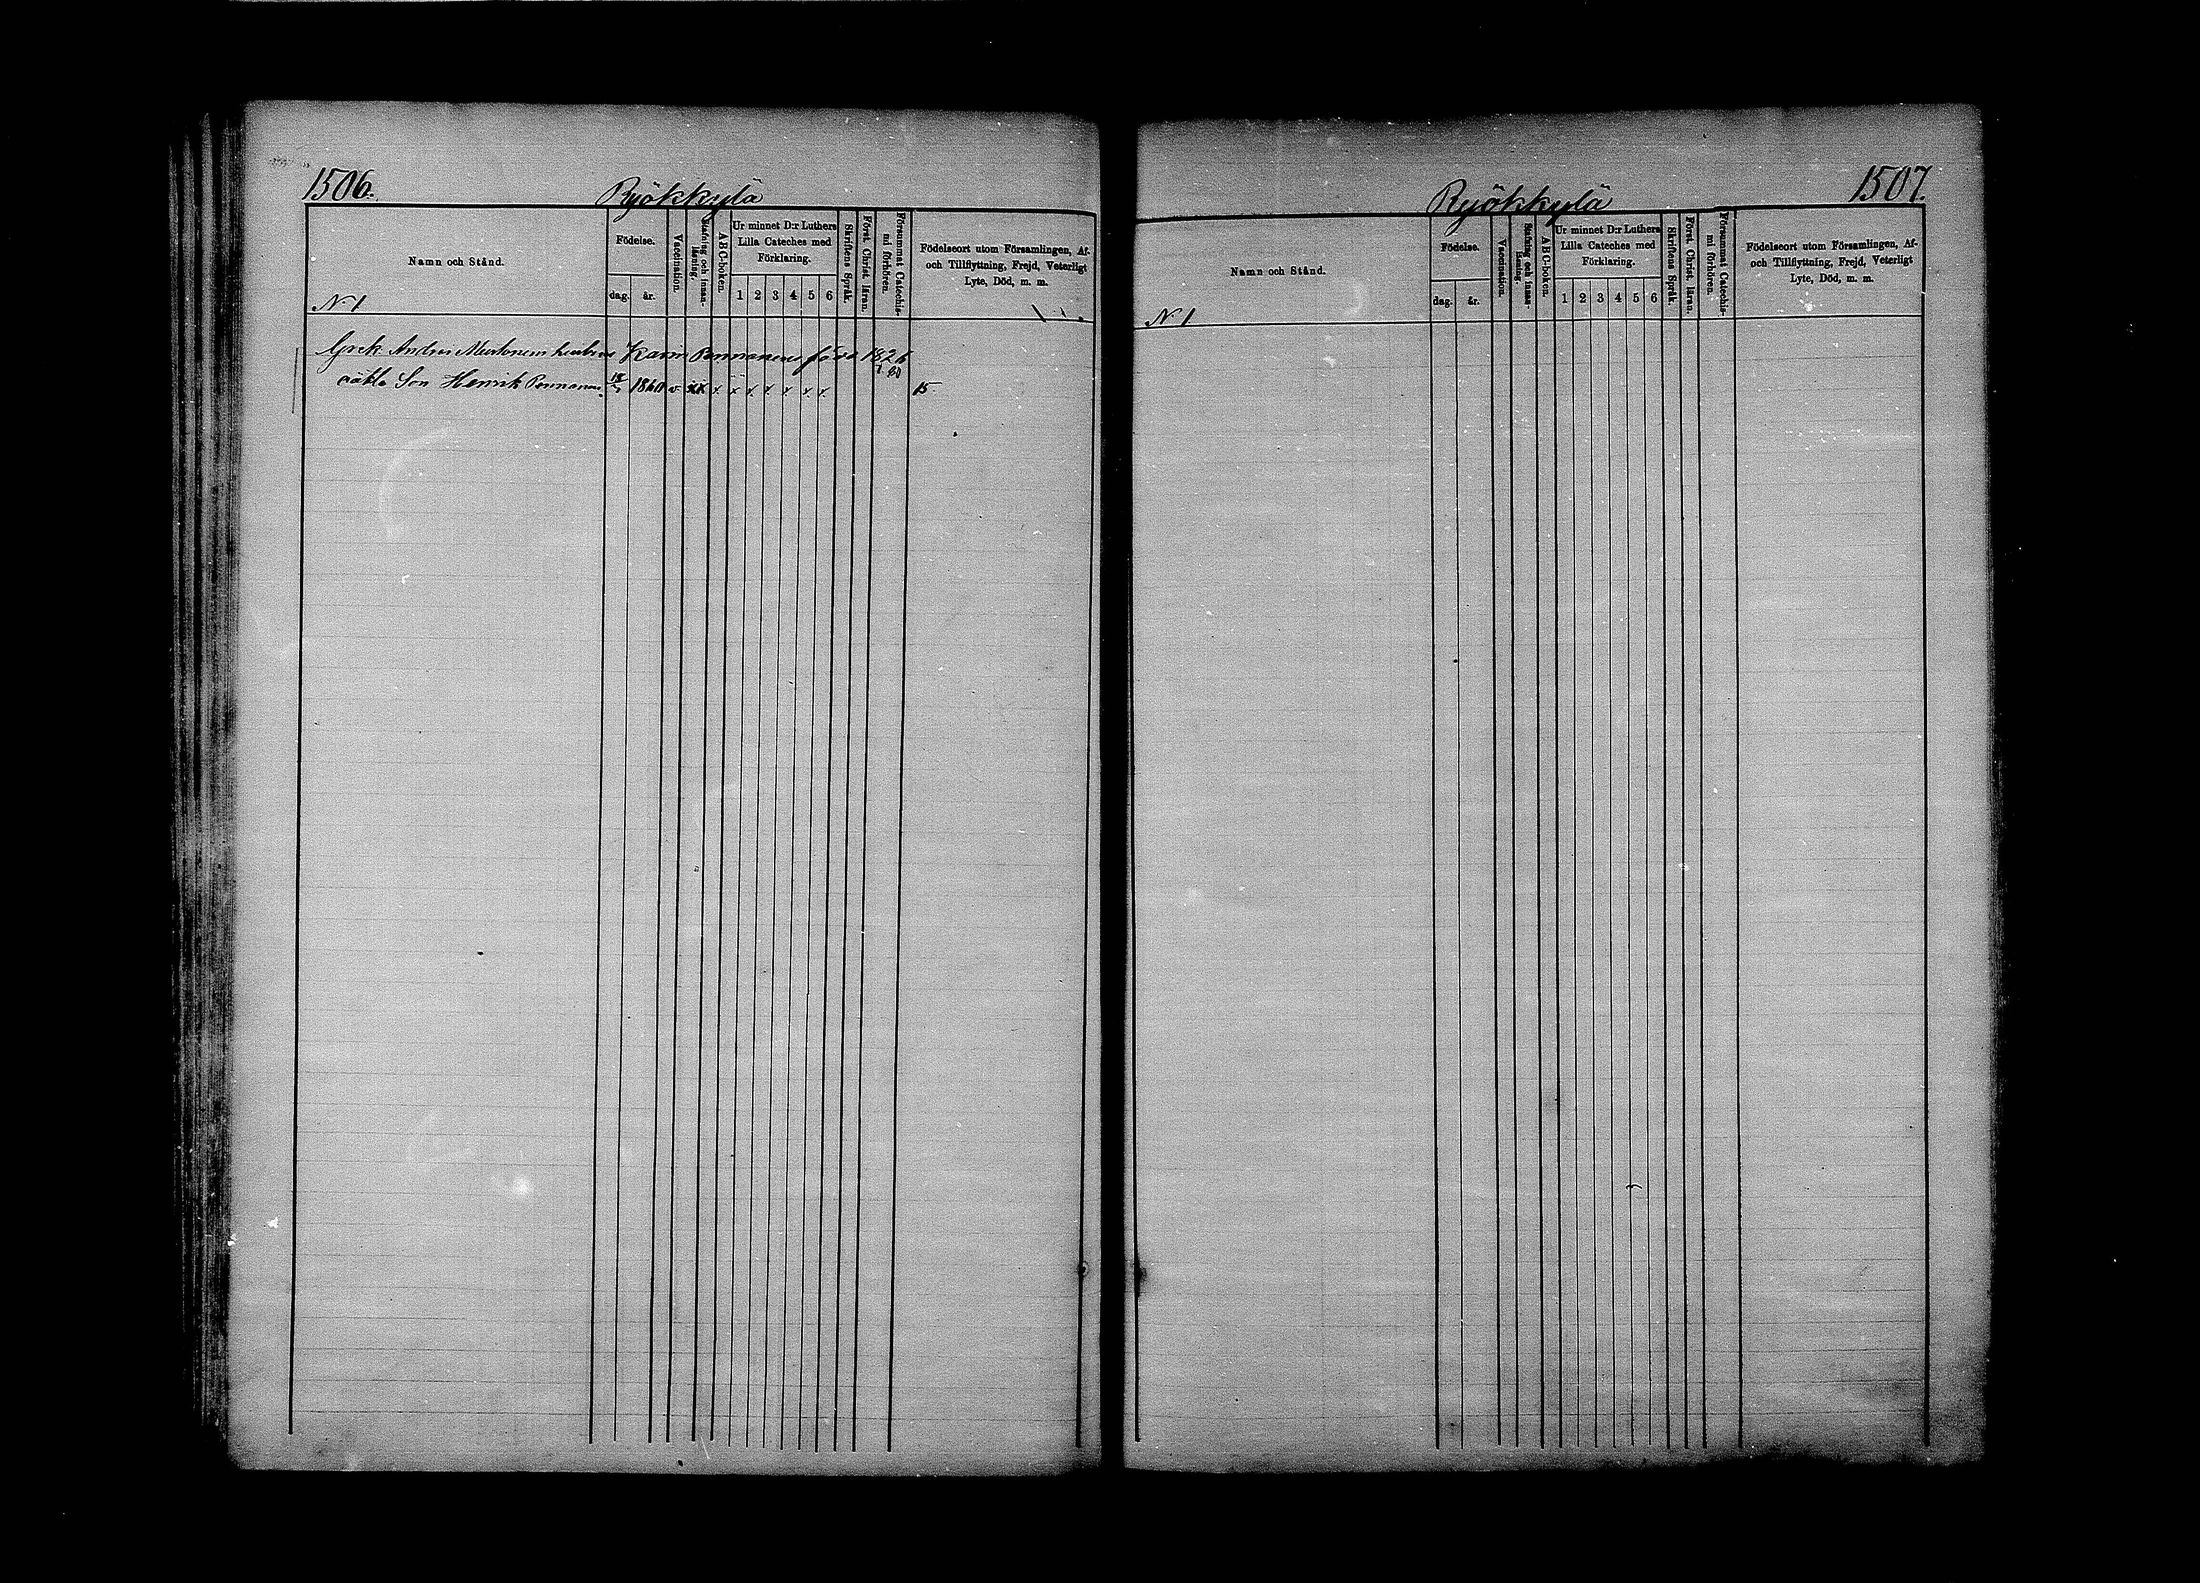 1506.
Ryökkylä
Namn och Stånd.
Födelse.
dag.
år.
Vaccination.
Stafning och innan-
läsning.
A B C-boken.
Ur minnet D:r Luthers
Lilla Cateches med
Förklaring.
1 2 3 4 5 6
Skriftens Språk.
Först. Christ. läran.
Försummat Catechis-
mi förhören.
Födelseort utom Församlingen, Af-
och Tillflyttning, Frejd, Veterligt
Lyte, Död, m. m.
N 1
Grek Andrus hustrus Karin Pennanens född 1826
oäkta Son Henrik Pennanen 1860 v xx x x x x x x x 15
1507.
Ryökkylä
Namn och Stånd.
Födelse.
dag.
år.
Vaccination.
Stafning och innan-
läsning.
A B C-boken.
Ur minnet D:r Luthers
Lilla Cateches med
Förklaring.
1 2 3 4 5 6
Skriftens Språk.
Först. Christ. läran.
Försummat Catechis-
mi förhören.
Födelseort utom Församlingen, Af-
och Tillflyttning, Frejd, Veterligt
Lyte, Död, m. m.
N. 1